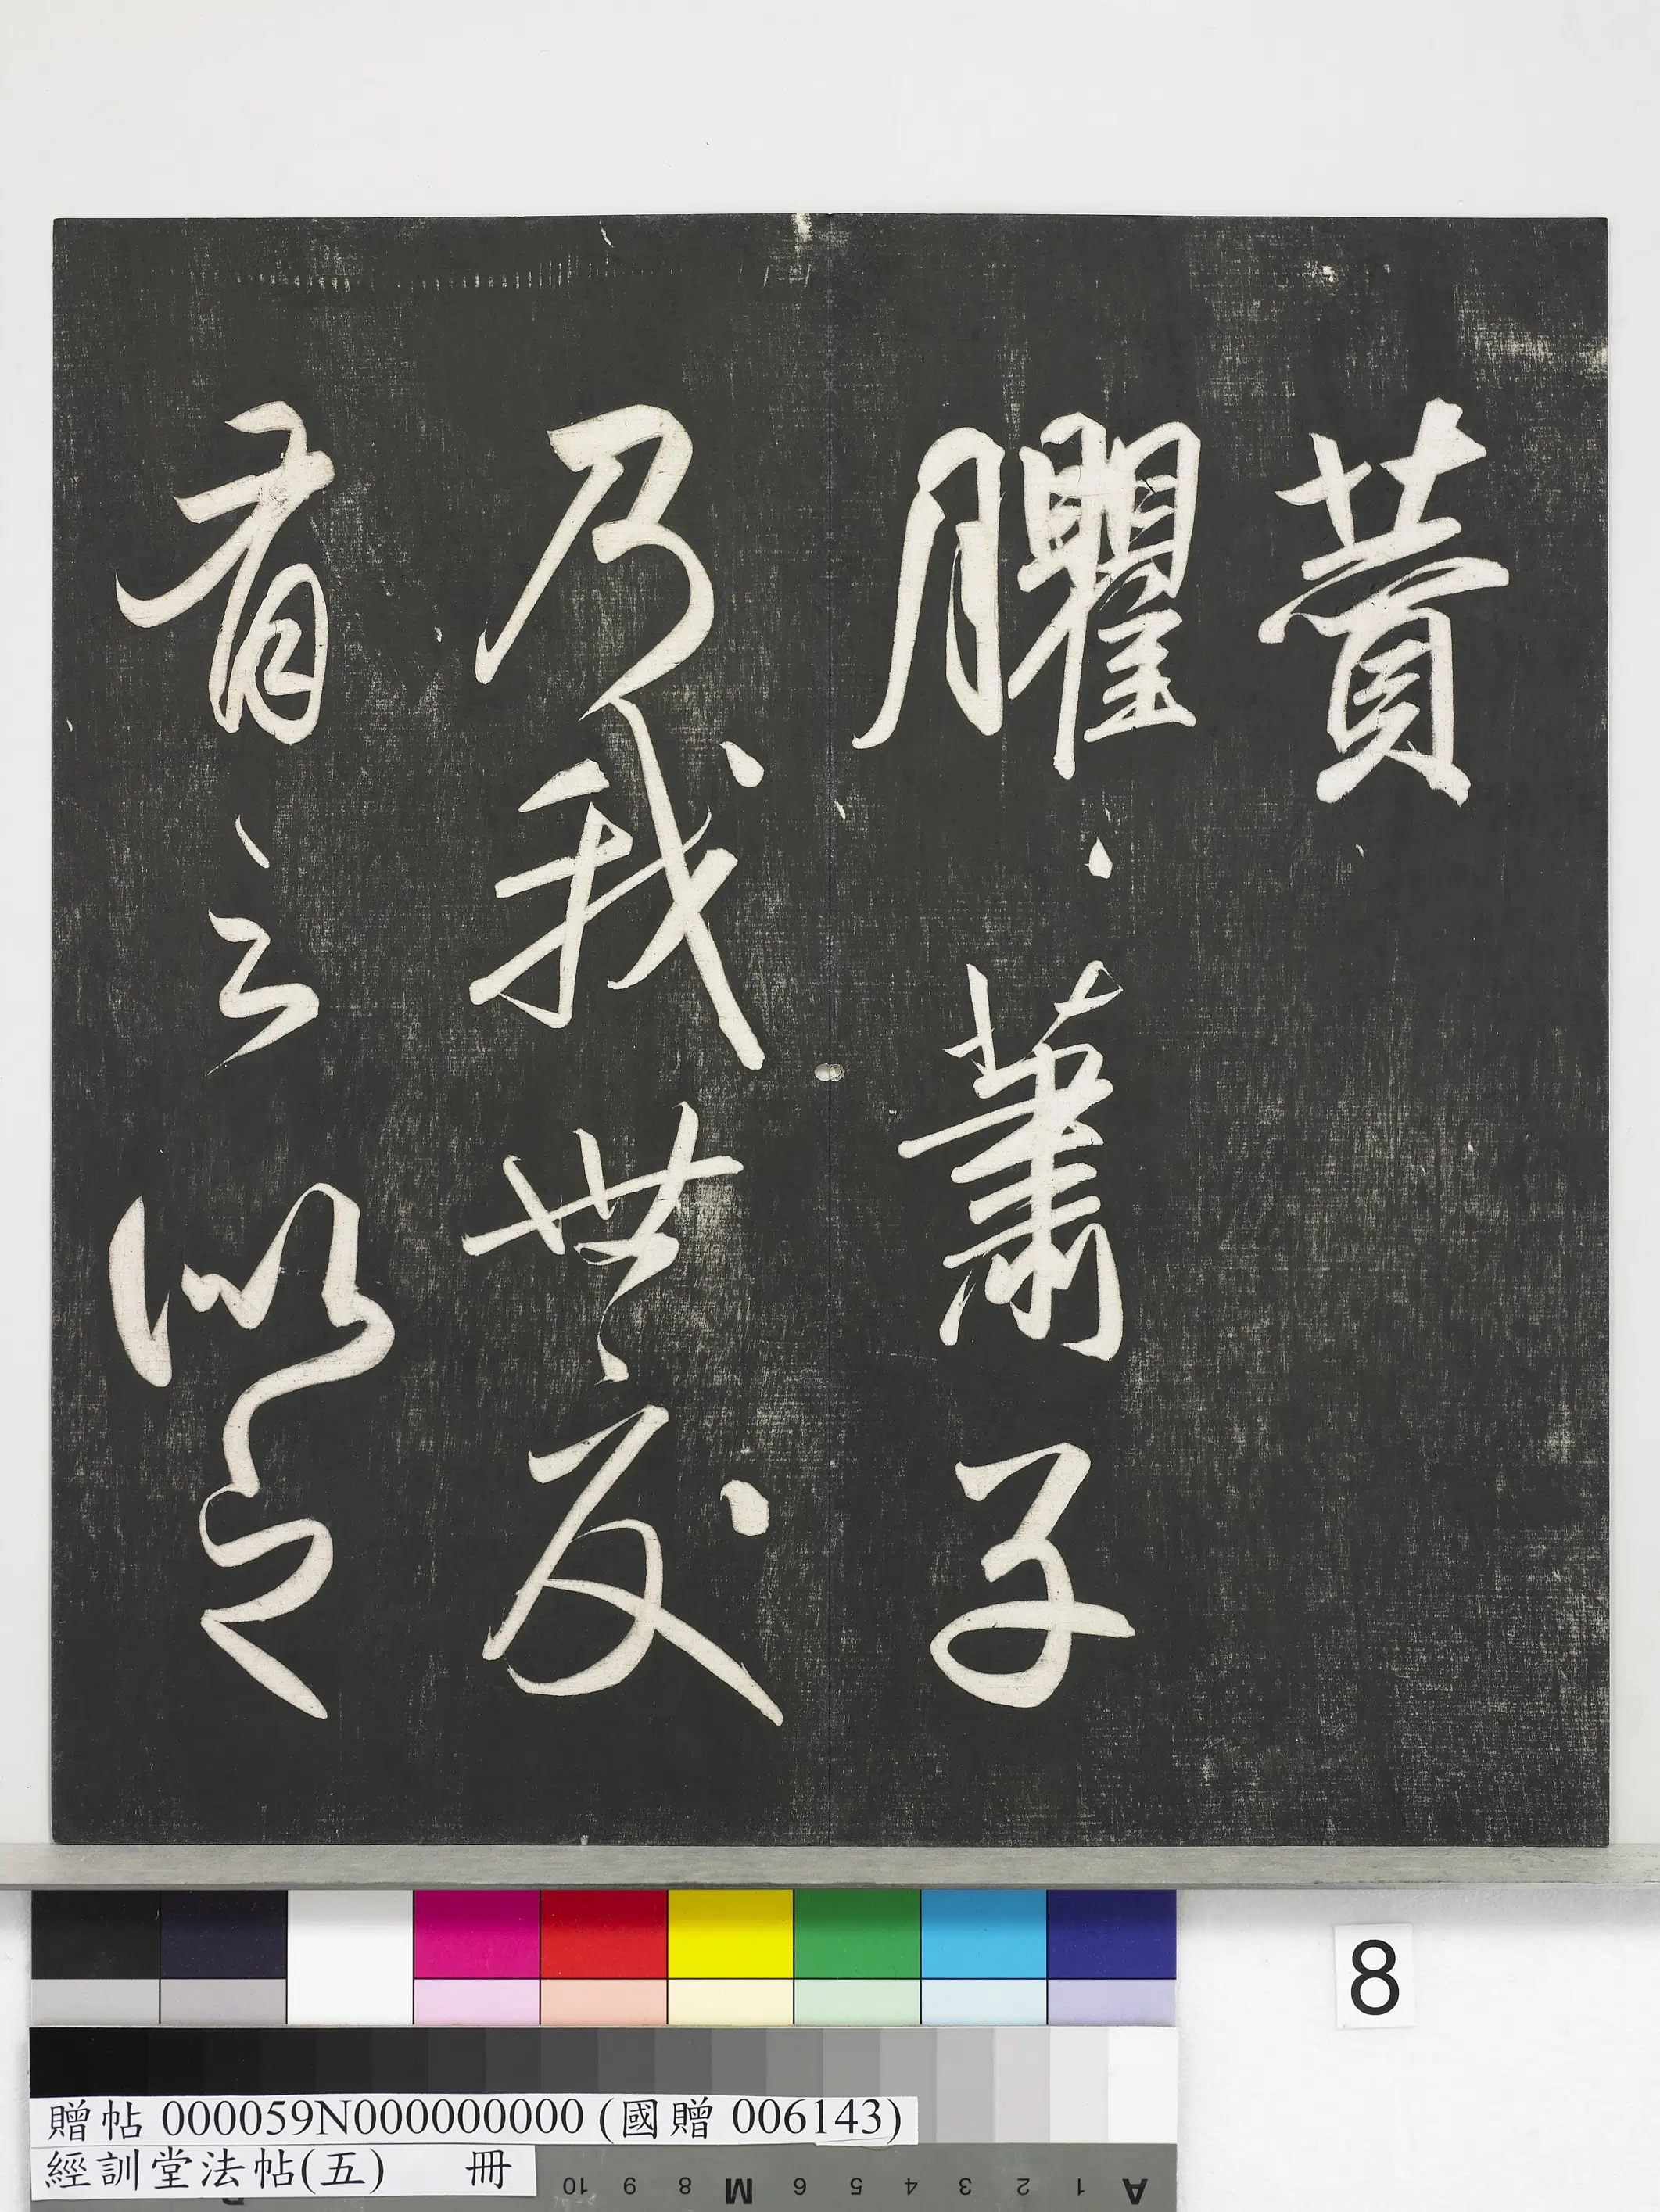 臞蕭子
乃我世
之以
8
贈帖 000059N000000000 (國贈 006143)
經訓堂法帖(五) 冊
10 9 8 M 6 5 4 3 2 1 A